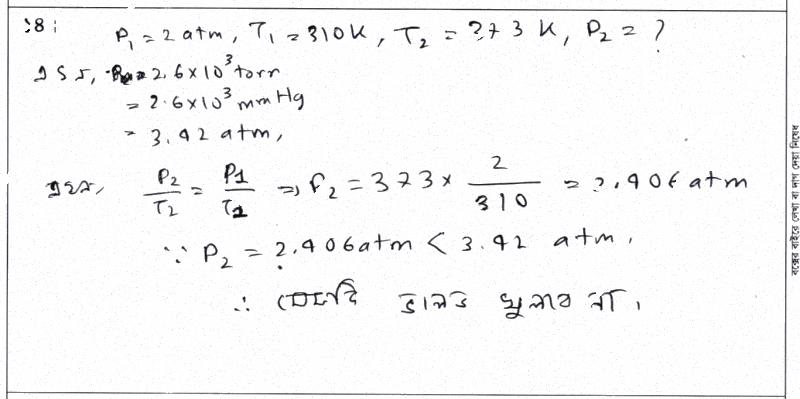 ১৪ : P₁ = 2 atm, T₁ = 310 K, T₂ = 373 K, P₂ = ?
= 2.6 × 10³ torr
= 2.6 × 10³ mm Hg
= 3.42 atm,
P₂/T₂ = P₁/T₁ ⇒ P₂ = 373 × 2/310 = 2.406 atm
∵ P₂ = 2.406 atm < 3.42 atm,
∴ ভালভ খুলবে না।
বক্সের বাইরে লেখা বা দাগ দেয়া নিষেধ